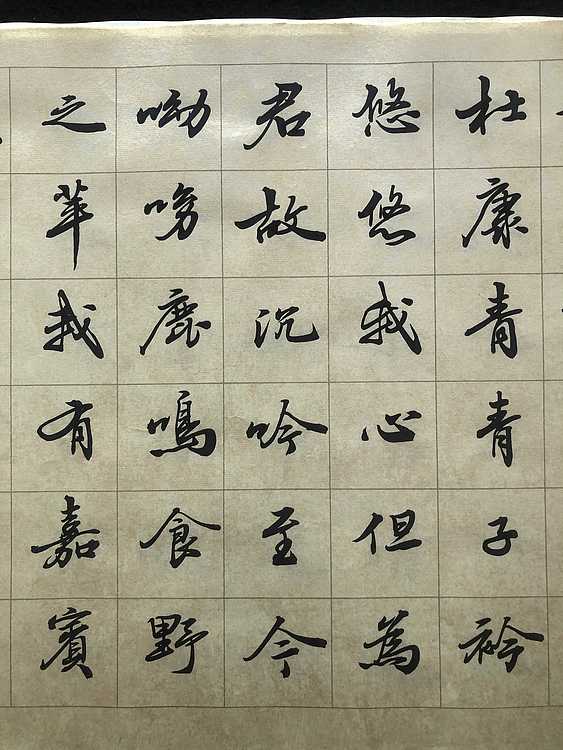 杜康青青子衿
悠悠我心但為
君故沉吟至今
呦呦鹿鳴食野
之苹我有嘉賓